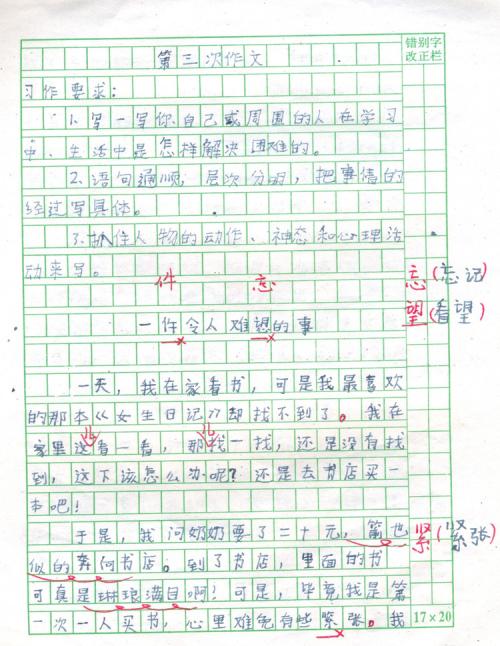 错别字
改正栏
第三次作文
习作要求：
1、写一写你自己或周围的人在学习
中、生活中是怎样解决困难的。
2、语句通顺，层次分明，把事情的
经过写具体。
3、抓住人物的动作、神态和心理活
动来写。
件 忘
忘(忘记)
望(看望)
一件令人难的事
一天，我在家看书，可是我最喜欢
的那本《女生日记》却找不到了。我在
家里这看一看，那找一找，还是没有找
到，这下该怎么办呢？还是去书店买一
本吧！
于是，我问奶奶要了二十元，箭也
紧(紧张)
似的奔向书店。到了书店，里面的书
可真是琳琅满目啊！可是，毕竟我是第
一次一人买书，心里难免有些紧张。我
17×20